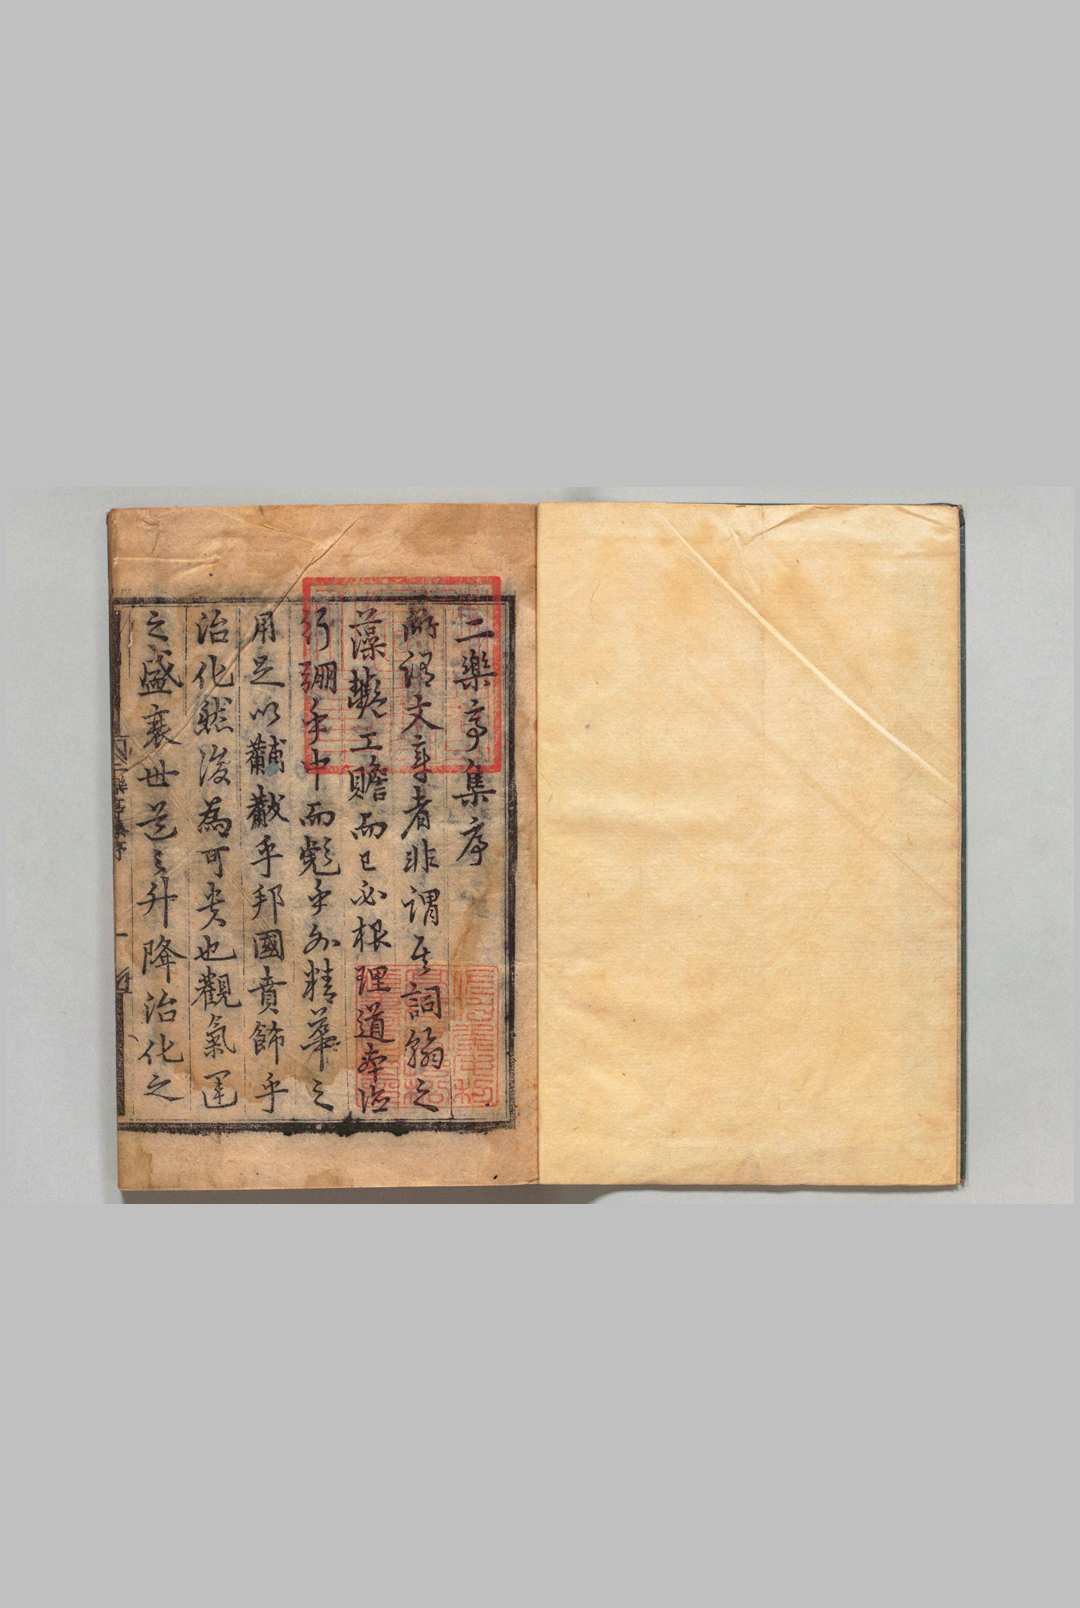 二樂亭集序
所謂文章者非謂其詞翰之
藻艶工贍而已必根理道率德
行弸乎中而彪乎外精華之
用足以黼黻乎邦國賁飾乎
治化然後為可貴也觀氣運
之盛衰世道之升降治化之
二樂亭集序
一